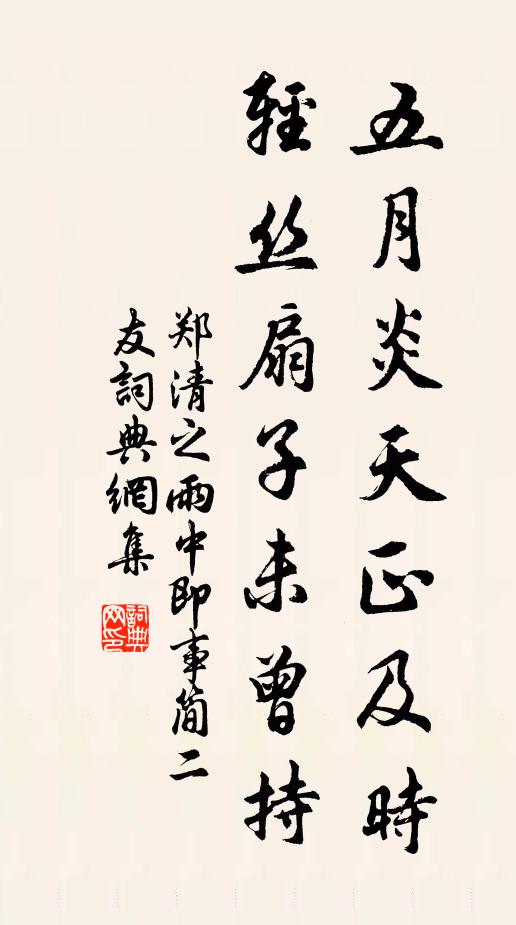 五月炎天正及時
輕丝扇子未曾持
郑清之雨中即事简二
友詞典網集
詞典网印